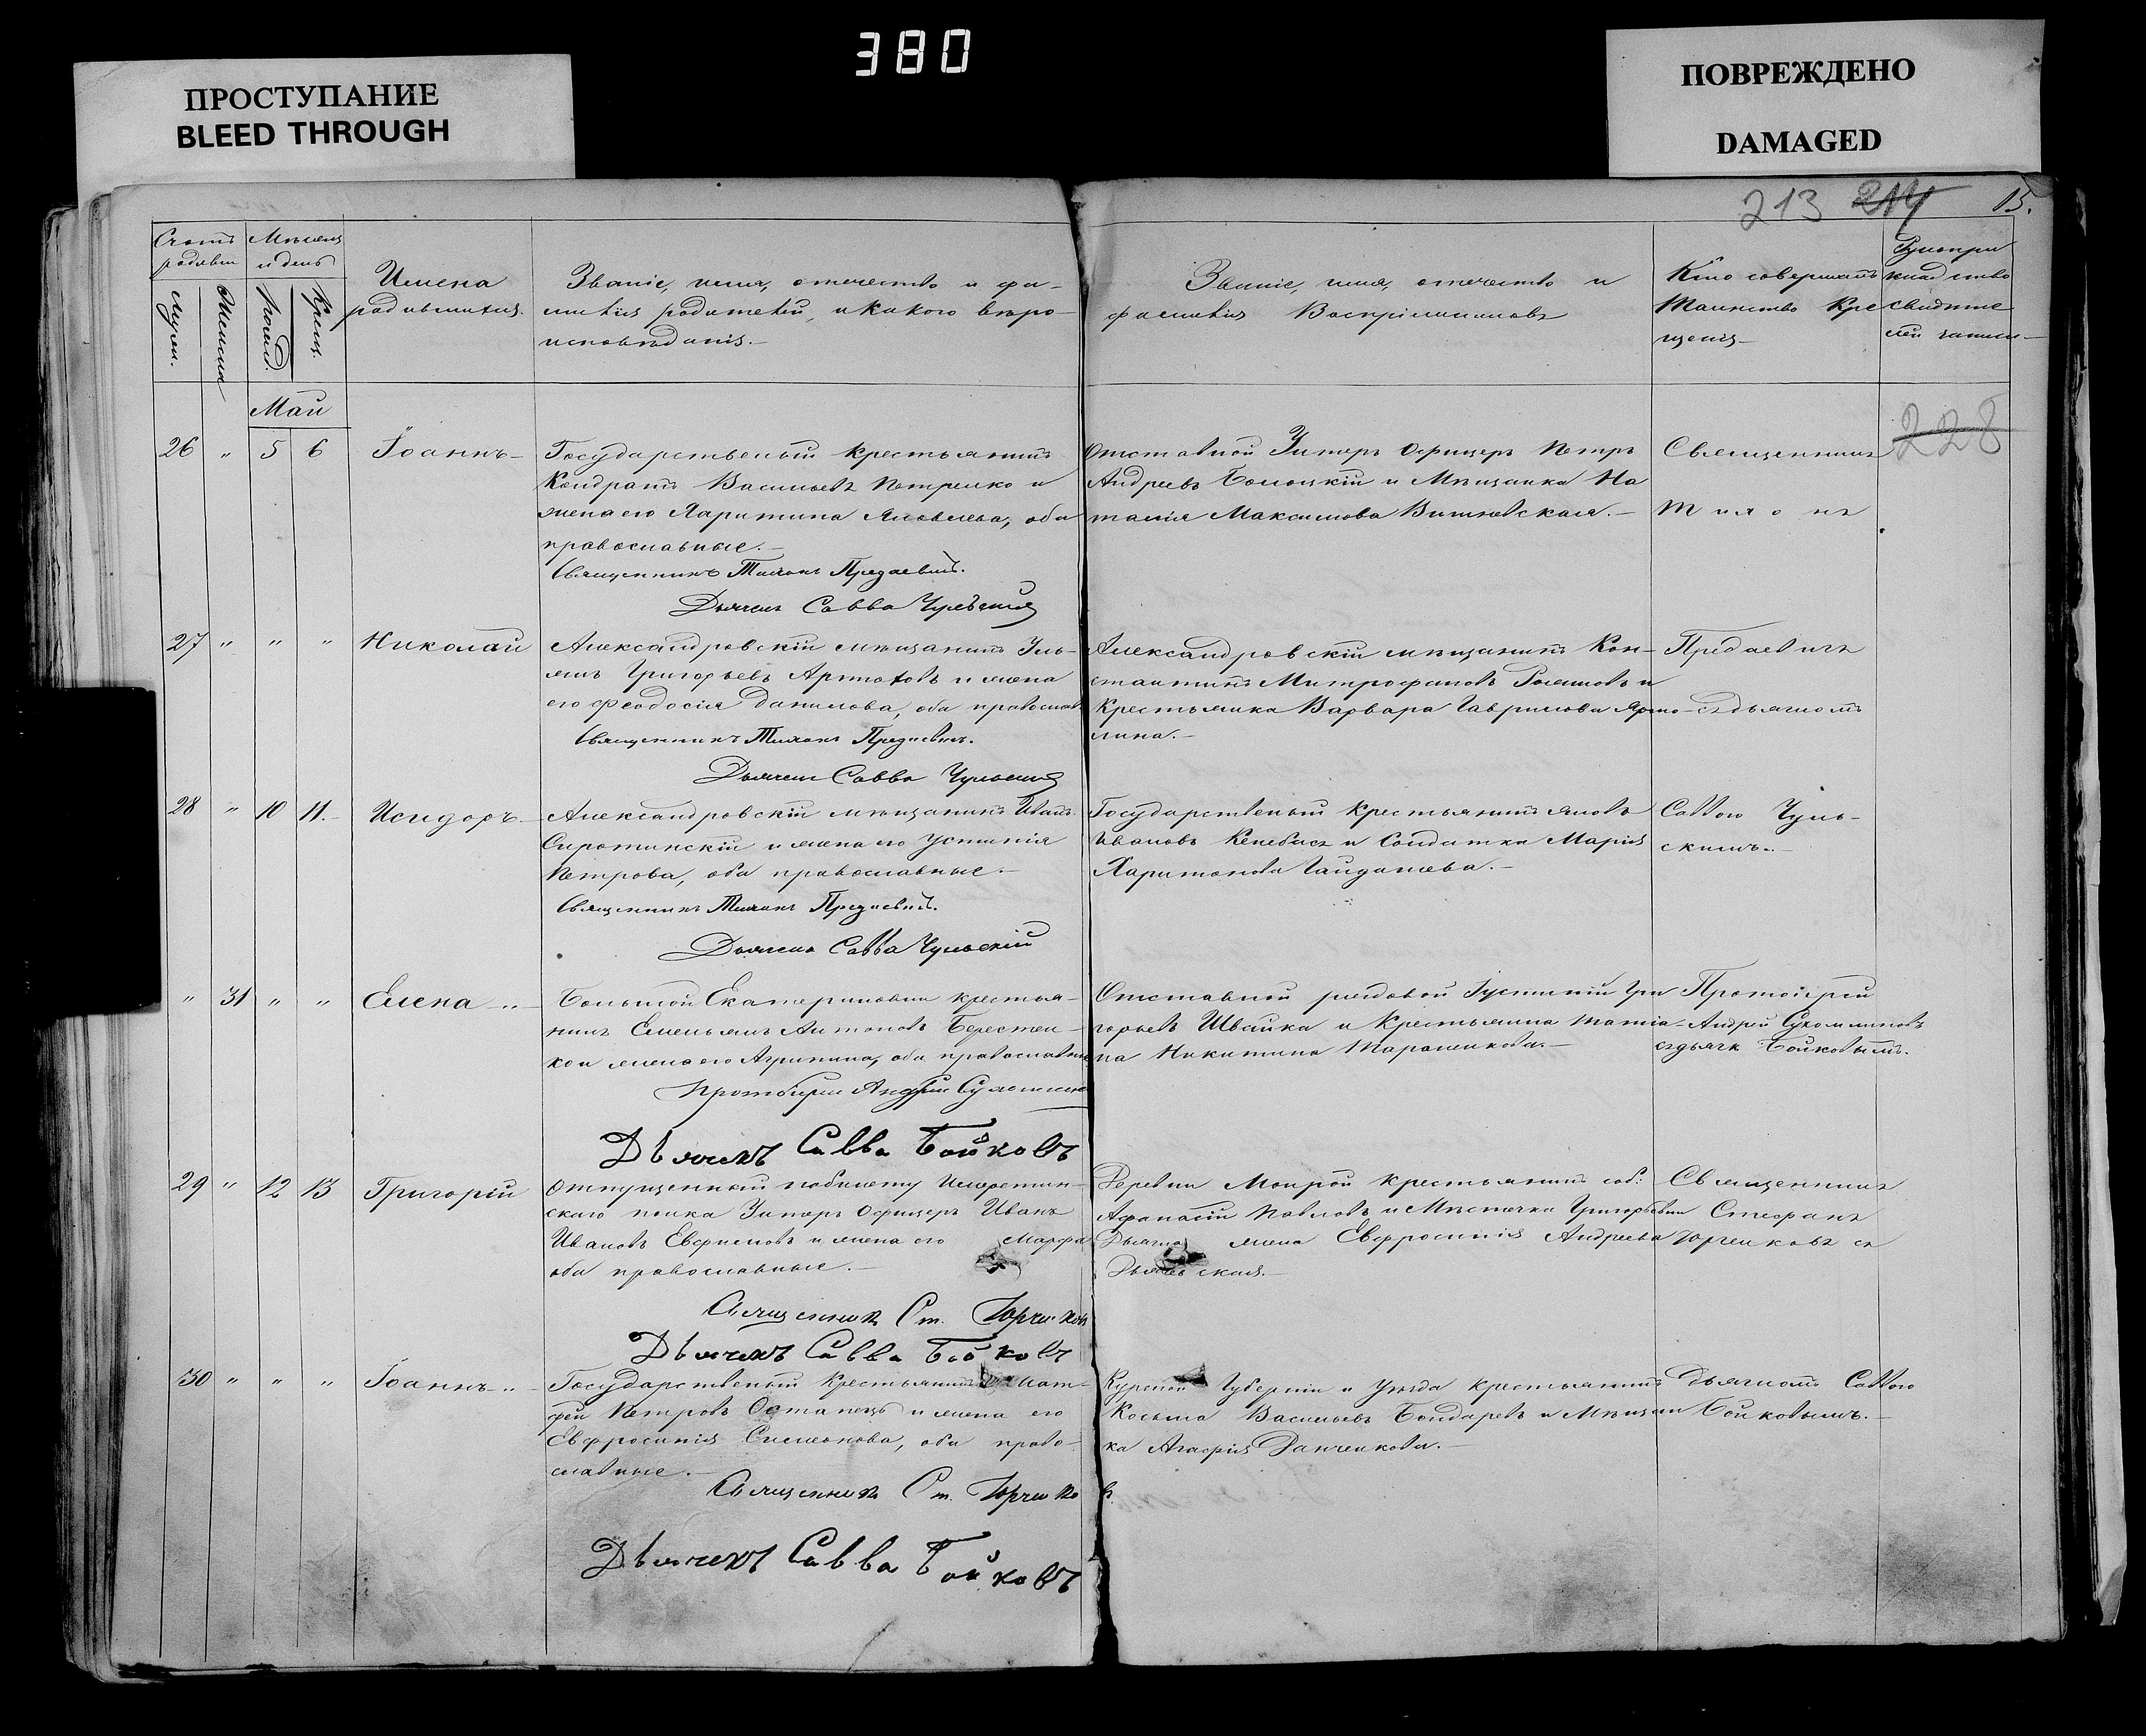 380
ПРОСТУПАНИЕ
BLEED THROUGH
ПОВРЕЖДЕНО
DAMAGED
213 214 15.
Счетъ родивш
Мѣсяцъ и день
Мужеск.
Женска
Рожд.
Крещ.
Имена
родившихся.
Званіе, имя, отчество и фа-
милія родителей, и какого вѣро-
исповѣданія.
Званіе, имя, отчество и
фамилія Воспріемниковъ
Кто совершалъ
Таинство Кре
щенія
Рукопри
кладство
свидѣте
лей записи
Маій
228
26 " 5 6 Іоаннъ
Государственый крестьянинъ
Кондратъ Васильевъ Петренко и
жена его Харитина Яковлева, оба
православные.
Священникъ Тихонъ Предаевичъ.
Дьячекъ Савва Чульскій
Отставной Унтеръ Офицеръ Петръ
Андреевъ Болоцкій и Мѣщанка На
талія Максимова Вишневская.
Священникъ
Тихонъ
27 " " " Николай
Александровскій мѣщанинъ Уль-
янъ Григорьевъ Артюховъ и жена
его Феодосія Данилова, оба православ
Священникъ Тихонъ Предаевичъ.
Дьячекъ Савва Чульскій
Александровскій мѣщанинъ Кон-
стантинъ Митрофановъ и
Крестьянка Варвара Гаврилова Ярмо-
лина.
Предаевичъ
съ дьячкомъ
28 " 10 11. Исидоръ.
Александровскій мѣщанинъ Иванъ
Сиротинскій и жена его Устинія
Петрова, оба православные.
Священникъ Тихонъ Предаевичъ.
Дьячекъ Савва Чульскій
Государственый крестьянинъ Яковъ
Ивановъ Кенебасъ и Солдатка Марія
Харитонова Гайдашева.
Саввою Чуль-
скимъ.
" 31 " " Елена
Большой Екатериновки крестья-
нинъ Емельянъ Антоновъ Берестен-
ко и жена его Агрипина, оба православные
Протоіерей Андрей Сухомлинов
Дьячекъ Савва Бойковъ
Отставной рядовой Іустиній Гри
горьевъ Швайка и Крестьянка Татіа-
на Никитина Тараненкова.
Протоіерей
Андрей Сухомлиновъ
съ дьячк Бойковымъ.
29 " 12 13 Григорій
Отпущенный Имеретин-
скаго полка Унтеръ Офицеръ Иванъ
Ивановъ Евфимовъ и жена его Марфа
оба православные.
Священникъ Ст. Юрченков
Дьячекъ Савва Бойковъ
Деревни Мокрой крестьянинъ соб:
Афанасій Павловъ и Мѣстечка Григорьевки
Дьячка жена Евфросинія Андреева
Священникъ
Стефанъ
Юрченковъ съ
30 " " " Іоаннъ
Государственый крестьянинъ
фей Петровъ Остапецъ и жена его
Евфросинія Симеонова, оба право-
славные.
Священникъ Ст. Юрченко
в.
Дьячекъ Савва Бойковъ
Курской Губерніи и Уѣзда крестьянинъ
Косьма Васильевъ Бондаревъ и Мѣщан
ка Агафія Данченкова.
дьячкомъ Саввою
Бойковымъ.